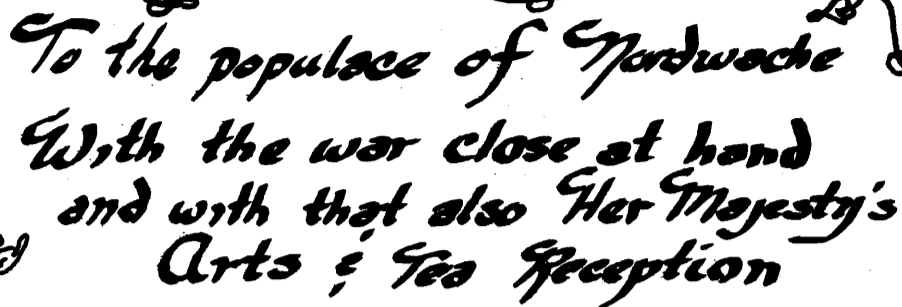 To the populace of Nordwache
With the war close at hand
and with that also Her Majesty's
Arts & Tea Reception